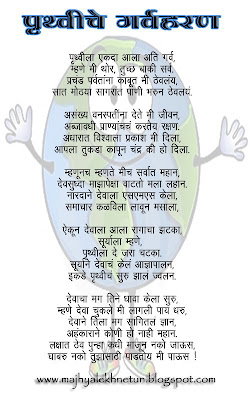 पृथ्वीचे गर्वहरण
पृथ्वीला एकदा आला अति गर्व,
म्हणे मी थोर, तुच्छ बाकी सर्व.
प्रचंड पर्वतांना काबूत मी ठेवलंय,
सात मोठया सागरांत पाणी भरुन ठेवलंय.
असंख्य वनस्पतींना देते मी जीवन,
अब्जावधी प्राण्यांचचं करतेय रक्षण.
अंधारात विश्वाला प्रकाश मी दिला,
आपला तुकडा कापून चंद्र की हो दिला.
म्हणूनच म्हणते मीच सर्वात महान,
देवसुध्दा माझापेक्षा वाटतो मला लहान.
नारदाने देवाला एसएमएस केला,
समाचार कळविला लावून मसाला,
ऐकून देवाला आला रागाचा झटका,
सूर्याला म्हणे,
पृथ्वीला दे जरा चटका.
सूर्याने देवाचं केलं आज्ञापालन,
इकडे पृथ्वीचं सुरु झालं ज्वलन.
देवाचा मग तिने धावा केला सुरु,
म्हणे देवा चुकले मी लागली पाय धरु,
देवाने तिला मग सांगितलं ज्ञान,
अहंकाराने कोणी हो नाही महान.
लक्षात ठेव पुन्हा कधी माजून नको जाऊस,
घाबरु नको तुझ्यासाठी पाडतोय मी पाऊस !
www.majhyalekhnetun.blogspot.com